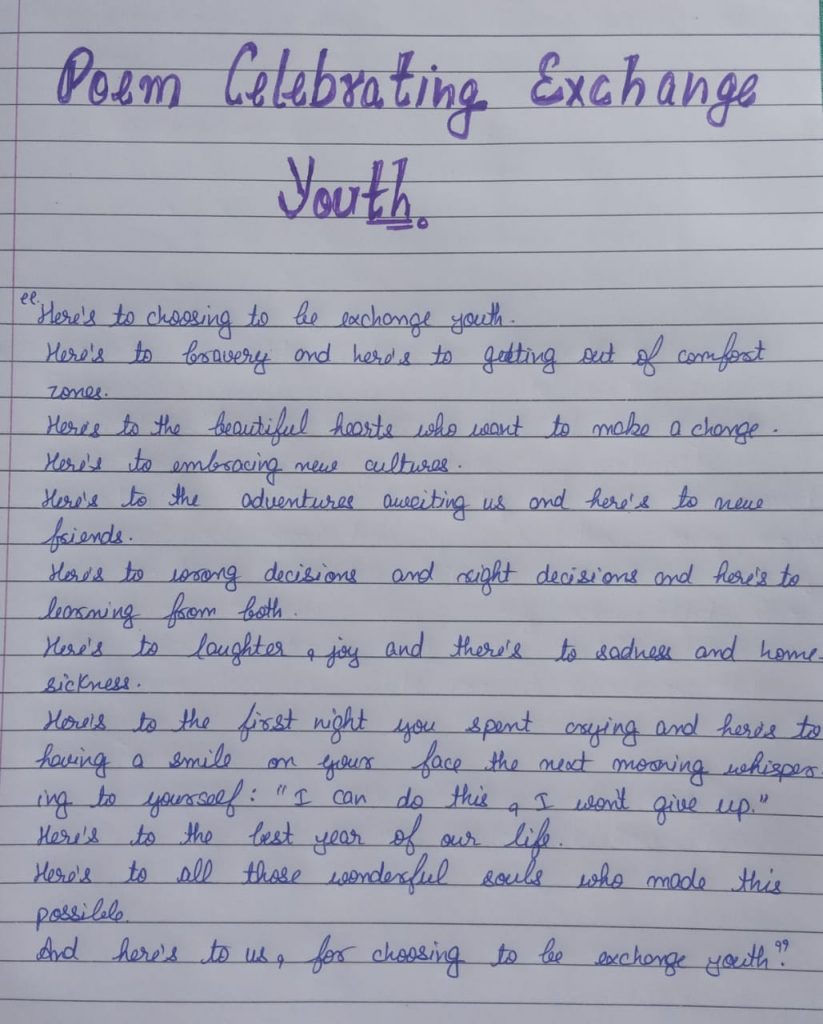 Poem Celebrating Exchange
Youth.
"Here's to choosing to be exchange youth.
Here's to bravery and here's to getting out of comfort
zones.
Here's to the beautiful hearts who want to make a change.
Here's to embracing new cultures.
Here's to the adventures awaiting us and here's to new
friends.
Here's to wrong decisions and right decisions and here's to
learning from both.
Here's to laughter, joy and there's to sadness and home-
sickness.
Here's to the first night you spent crying and here's to
having a smile on your face the next morning whisper-
ing to yourself: "I can do this, I won't give up."
Here's to the best year of our life.
Here's to all those wonderful souls who made this
possible.
And here's to us, for choosing to be exchange youth".